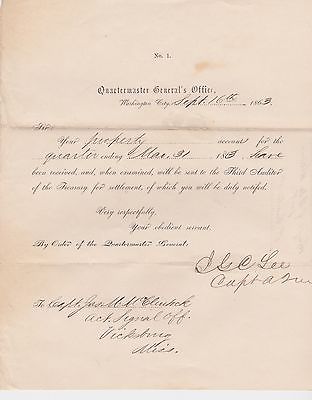 No. 1.
Quartermaster General's Office,
Washington City, Sept. 16th 1863
Sir:
Your property accounts for the
quarter ending Mar. 31 1863, have
been received, and, when examined, will be sent to the Third Auditor
of the Treasury for settlement, of which you will be duly notified.
Very respectfully,
Your obedient servant,
By Order of the Quartermaster General:
J G C Lee
Capt A
To Capt. Jas. M. McClintock
Act. Signal Off.
Vicksburg
Miss.